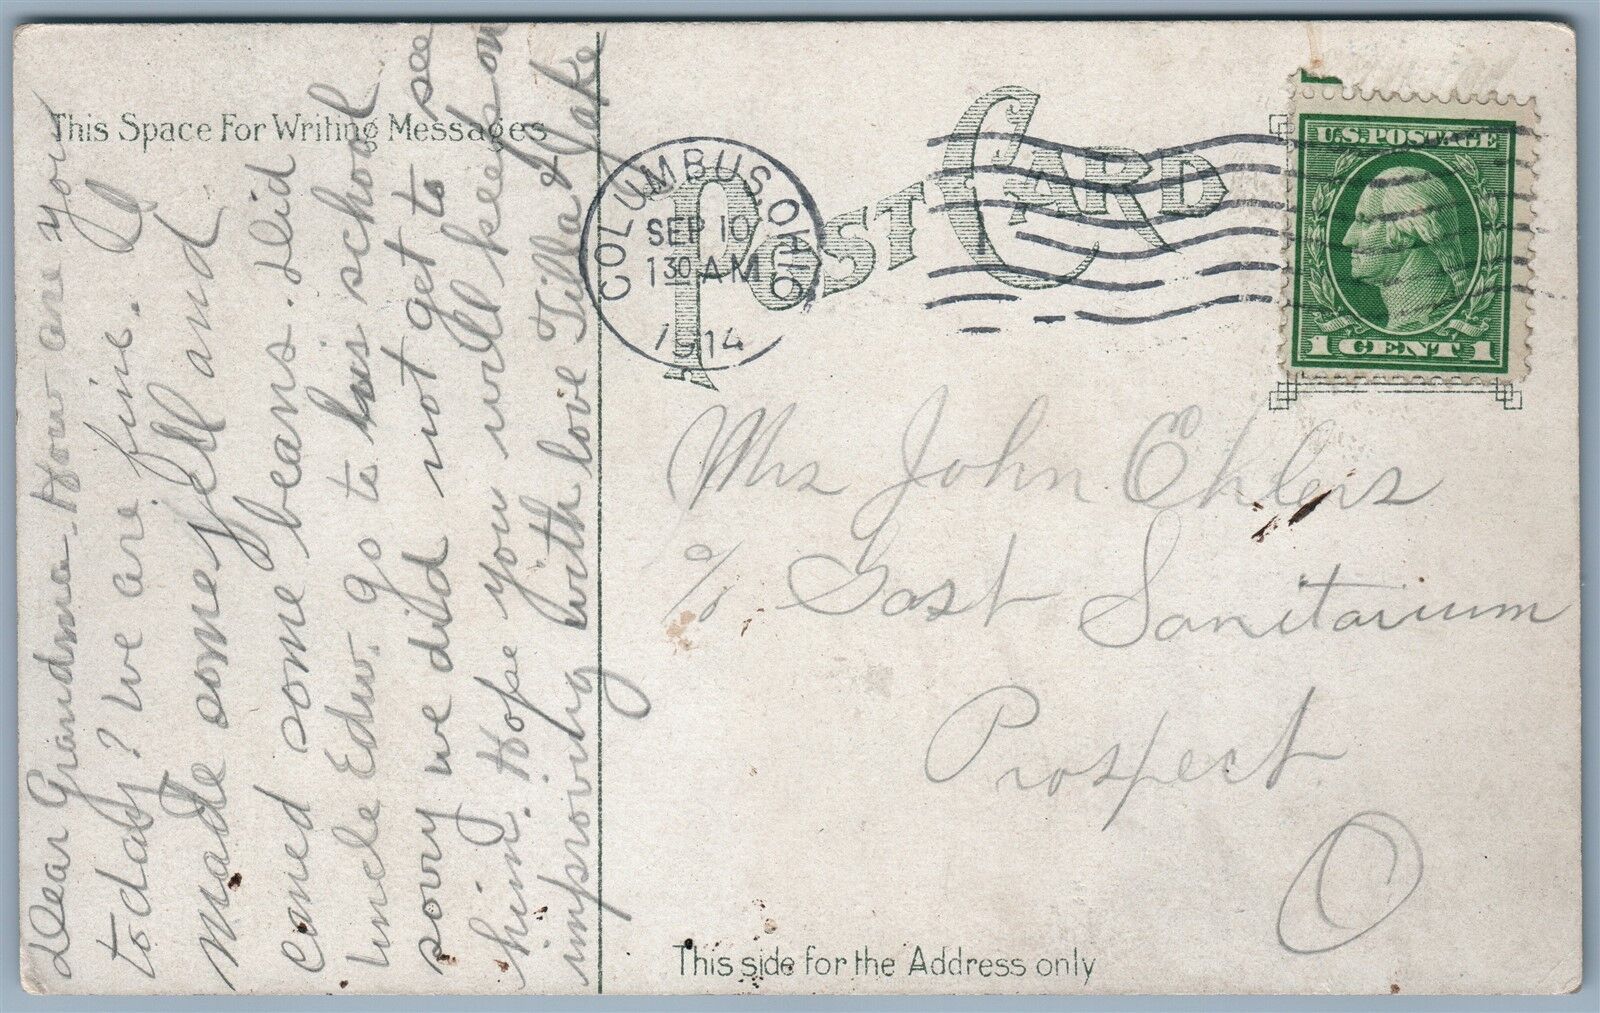 This Space For Writing Messages
Dear Grandma - How are you
today? We are fine. I
made some jell and
caned some beans. Did
Uncle Edw. go to his school
sorry we did not get to see
him. Hope you will keep on
improving with love Tilla & Jake
POST CARD
COLUMBUS, OHIO
SEP 10
1 30 AM
1914
U.S. POSTAGE
1 CENT 1
Mrs John Ehlers
c/o Sanitarium
Prospect
O
This side for the Address only